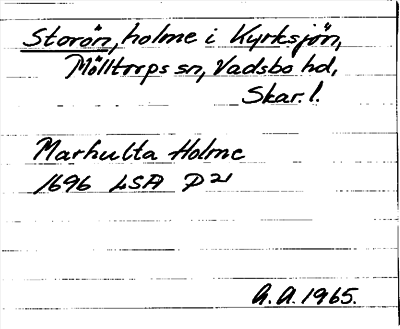 Storön, holme i Kyrksjön,
Mölltorps sn, Vadsbo hd,
Skar. l.
Marhulta Holme
1696 LSA P 21
A. A. 1965.